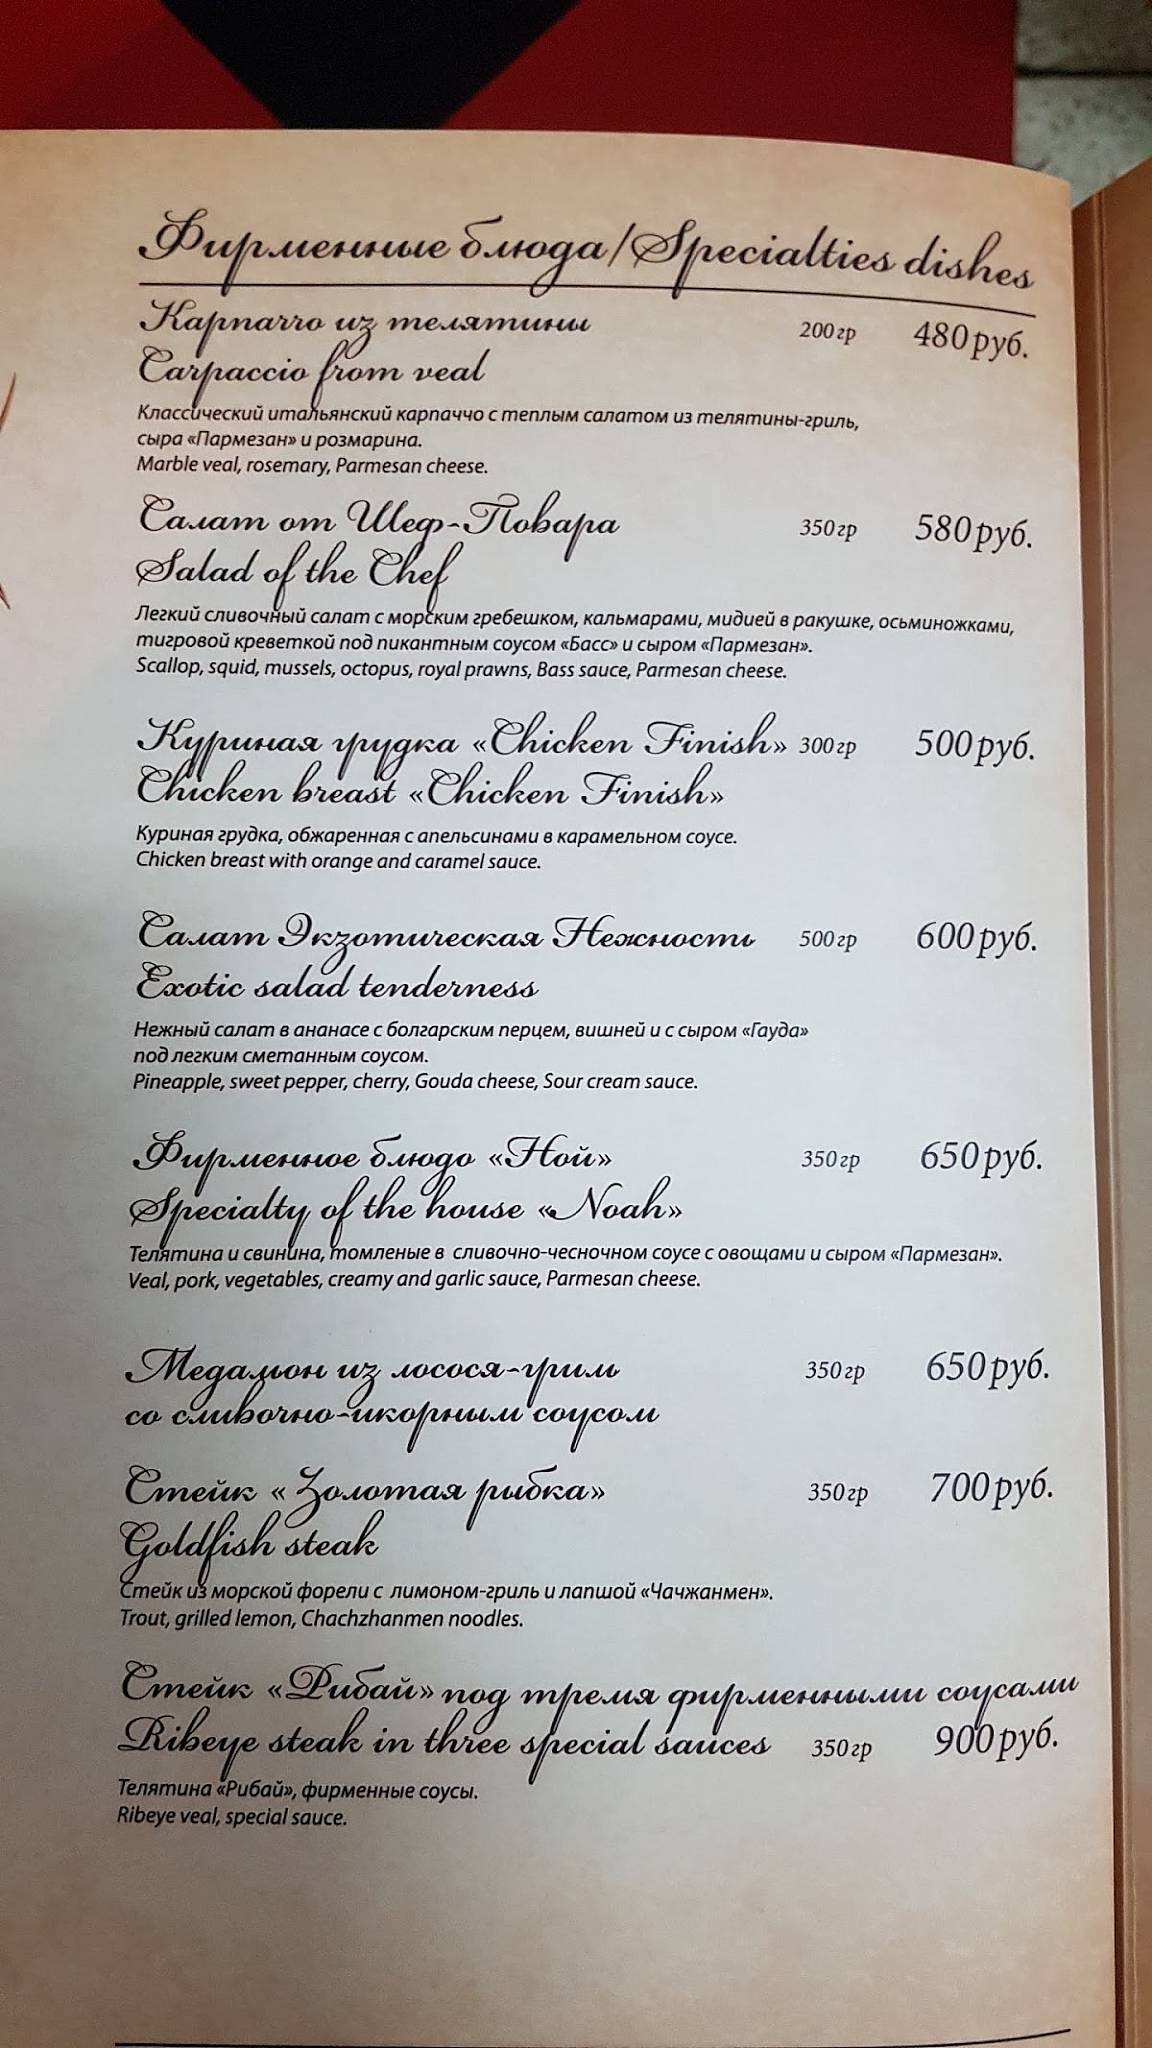 Фирменные блюда/Specialties dishes
Карпаччо из телятины 200гр 480руб.
Carpaccio from veal
Классический итальянский карпаччо с теплым салатом из телятины-гриль,
сыра «Пармезан» и розмарина.
Marble veal, rosemary, Parmesan cheese.
Салат от Шеф-Повара 350гр 580руб.
Salad of the Chef
Легкий сливочный салат с морским гребешком, кальмарами, мидией в ракушке, осьминожками,
тигровой креветкой под пикантным соусом «Басс» и сыром «Пармезан».
Scallop, squid, mussels, octopus, royal prawns, Bass sauce, Parmesan cheese.
Куриная грудка «Chicken Finish» 300гр 500руб.
Chicken breast «Chicken Finish»
Куриная грудка, обжаренная с апельсинами в карамельном соусе.
Chicken breast with orange and caramel sauce.
Салат Экзотическая Нежность 500гр 600руб.
Exotic salad tenderness
Нежный салат в ананасе с болгарским перцем, вишней и с сыром «Гауда»
под легким сметанным соусом.
Pineapple, sweet pepper, cherry, Gouda cheese, Sour cream sauce.
Фирменное блюдо «Ной» 350гр 650руб.
Specialty of the house «Noah»
Телятина и свинина, томленые в сливочно-чесночном соусе с овощами и сыром «Пармезан».
Veal, pork, vegetables, creamy and garlic sauce, Parmesan cheese.
Медальон из лосося-гриль 350гр 650руб.
со сливочно-икорным соусом
Стейк «Золотая рыбка» 350гр 700руб.
Goldfish steak
Стейк из морской форели с лимоном-гриль и лапшой «Чачжанмен».
Trout, grilled lemon, Chachzhanmen noodles.
Стейк «Рибай» под тремя фирменными соусами
Ribeye steak in three special sauces 350гр 900руб.
Телятина «Рибай», фирменные соусы.
Ribeye veal, special sauce.